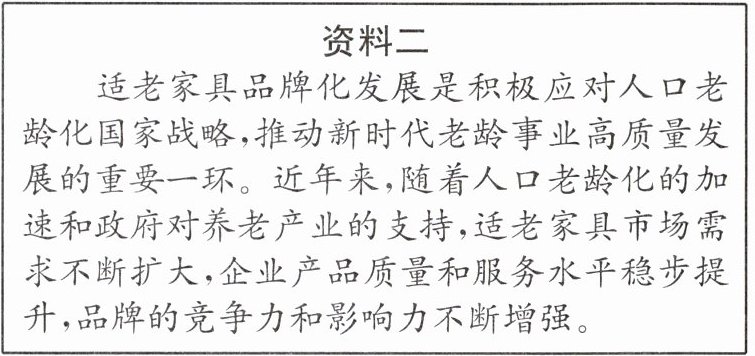 资料二
适老家具品牌化发展是积极应对人口老
龄化国家战略,推动新时代老龄事业高质量发
展的重要一环。近年来,随着人口老龄化的加
速和政府对养老产业的支持,适老家具市场需
求不断扩大,企业产品质量和服务水平稳步提
升,品牌的竞争力和影响力不断增强。